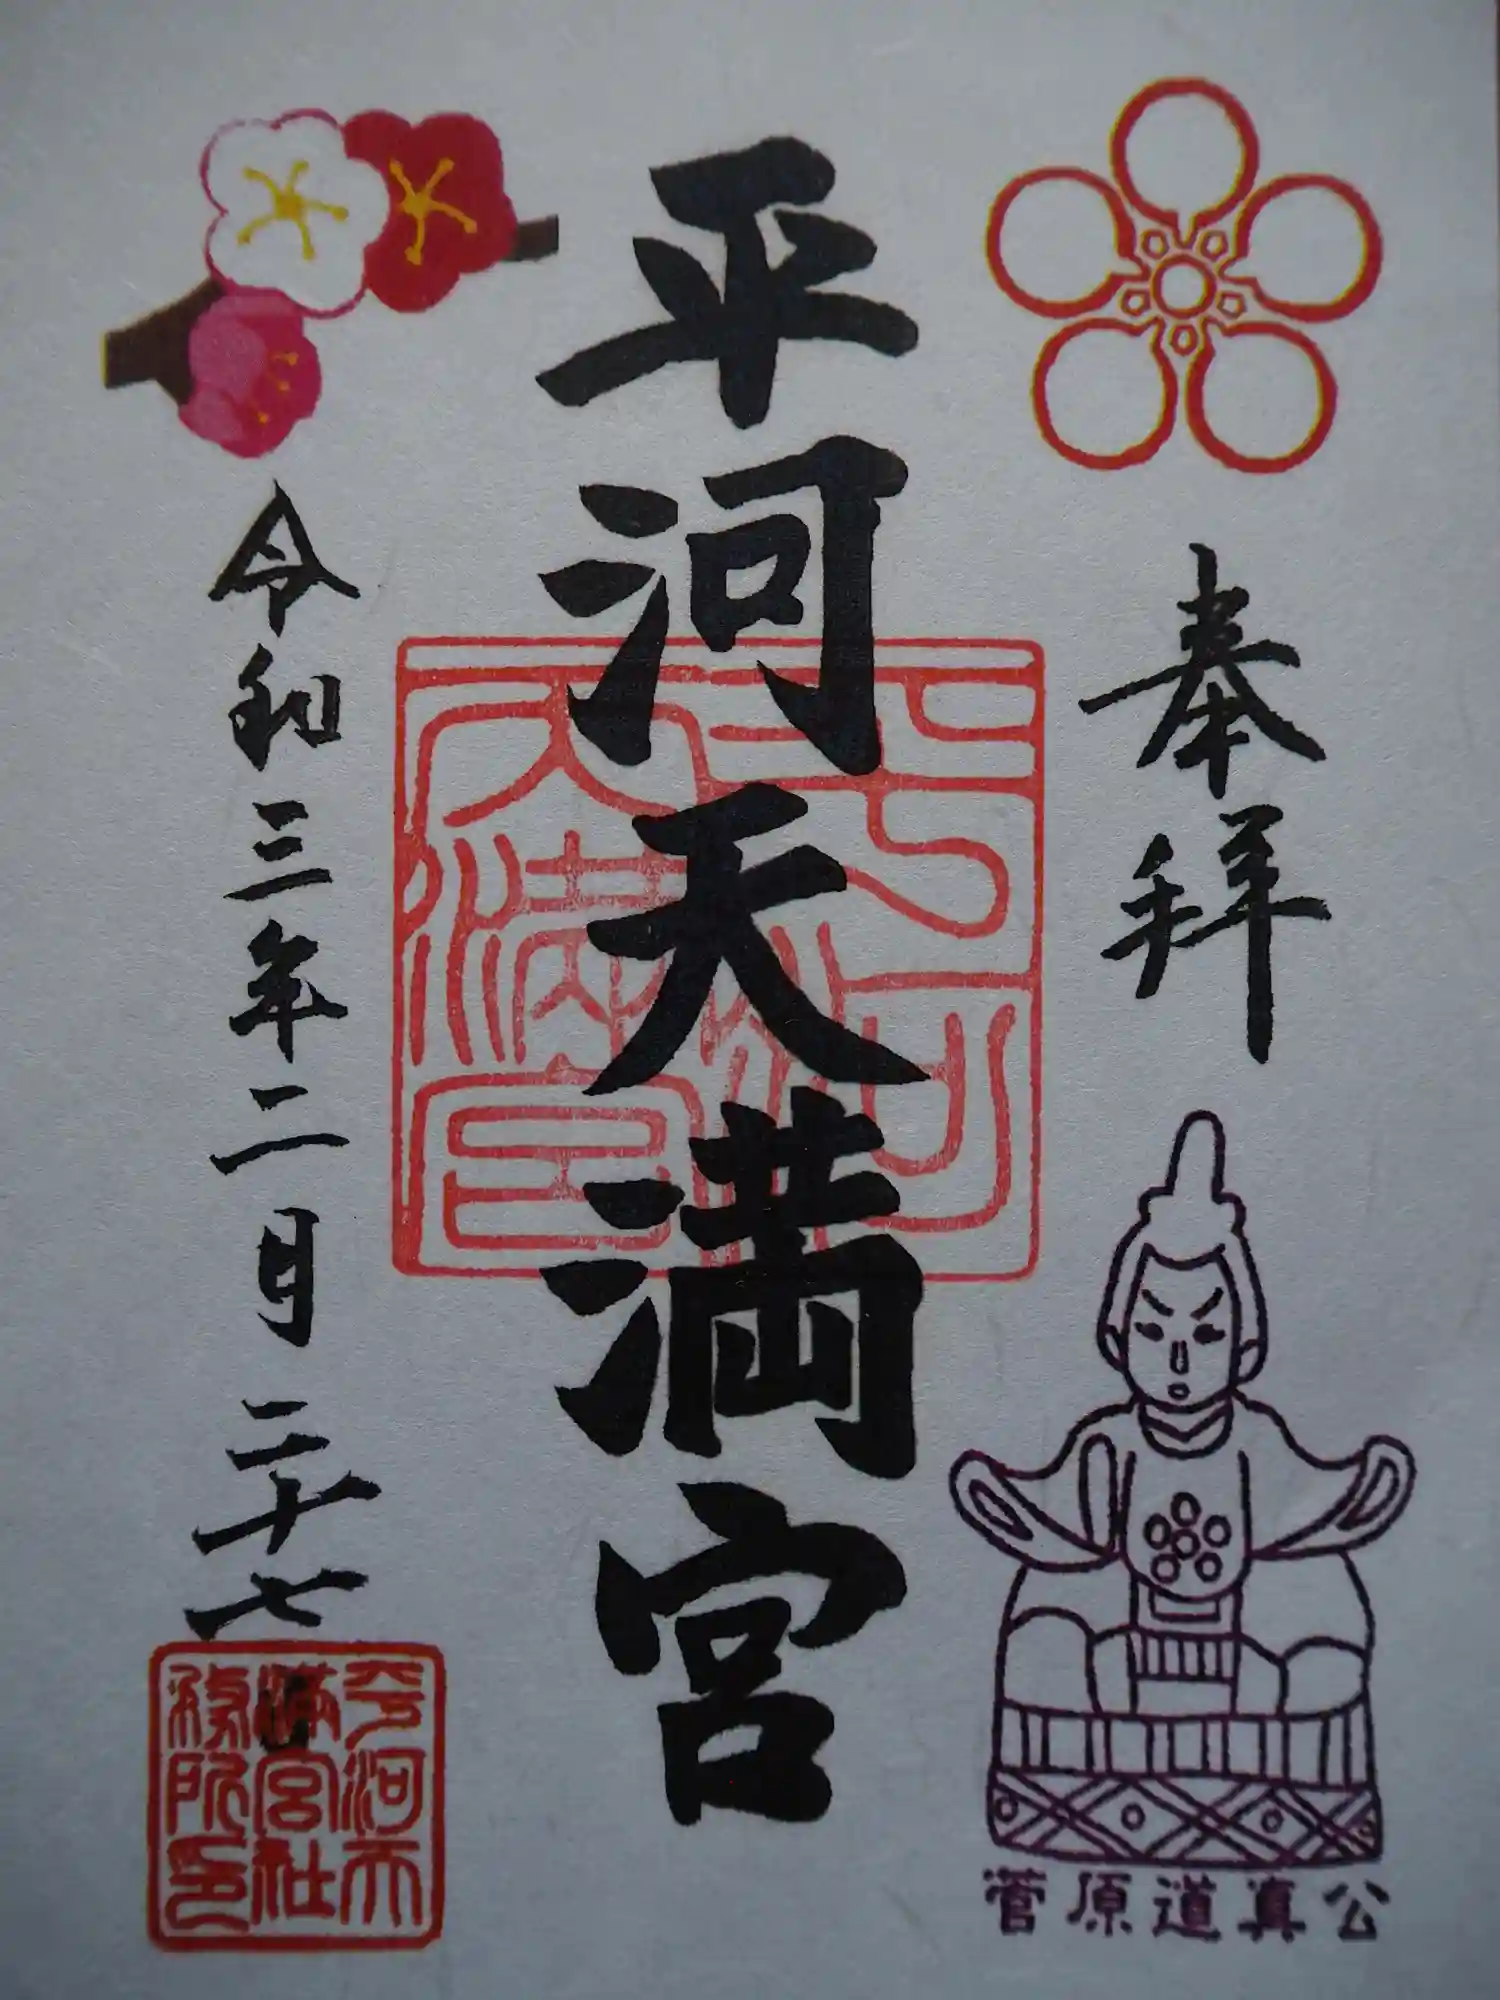 奉拝
平河天満宮
令和三年二月二十七
平河天
満宮社
務所印
菅原道真公